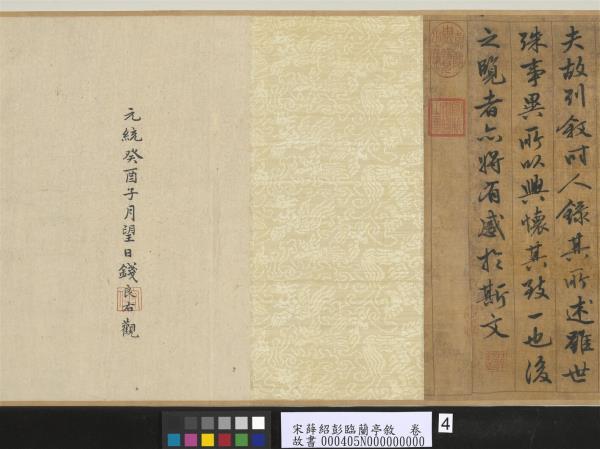 夫故列敘時人錄其所述雖世
殊事異所以興懷其致一也後
之覽者亦將有感於斯文
元統癸酉子月望日錢良右觀
宋薛紹彭臨蘭亭敘　卷
故書 000405N000000000
4